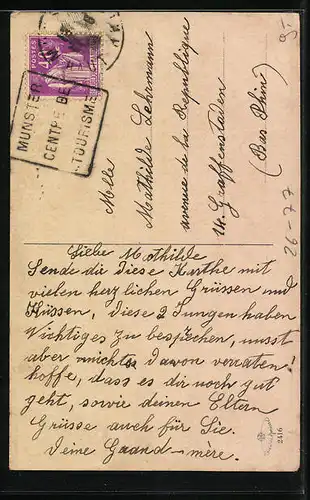 POSTES
MUNSTER
CENTRE DE
TOURISME
Melle
Mathilde Lehrmann
avenue de la Republique
Ill. Graffenstaden
(Bas Rhin)
26-77
Liebe Mathilde
Sende dir diese Karthe mit
vielen herzlichen Grüssen und
Küssen, diese 2 Jungen haben
Wichtiges zu besprechen, musst
aber nichts davon verraten!
hoffe, dass es dir noch gut
geht, sowie deinen Eltern
Grüsse auch für Sie.
Deine Graand-mère.
2416